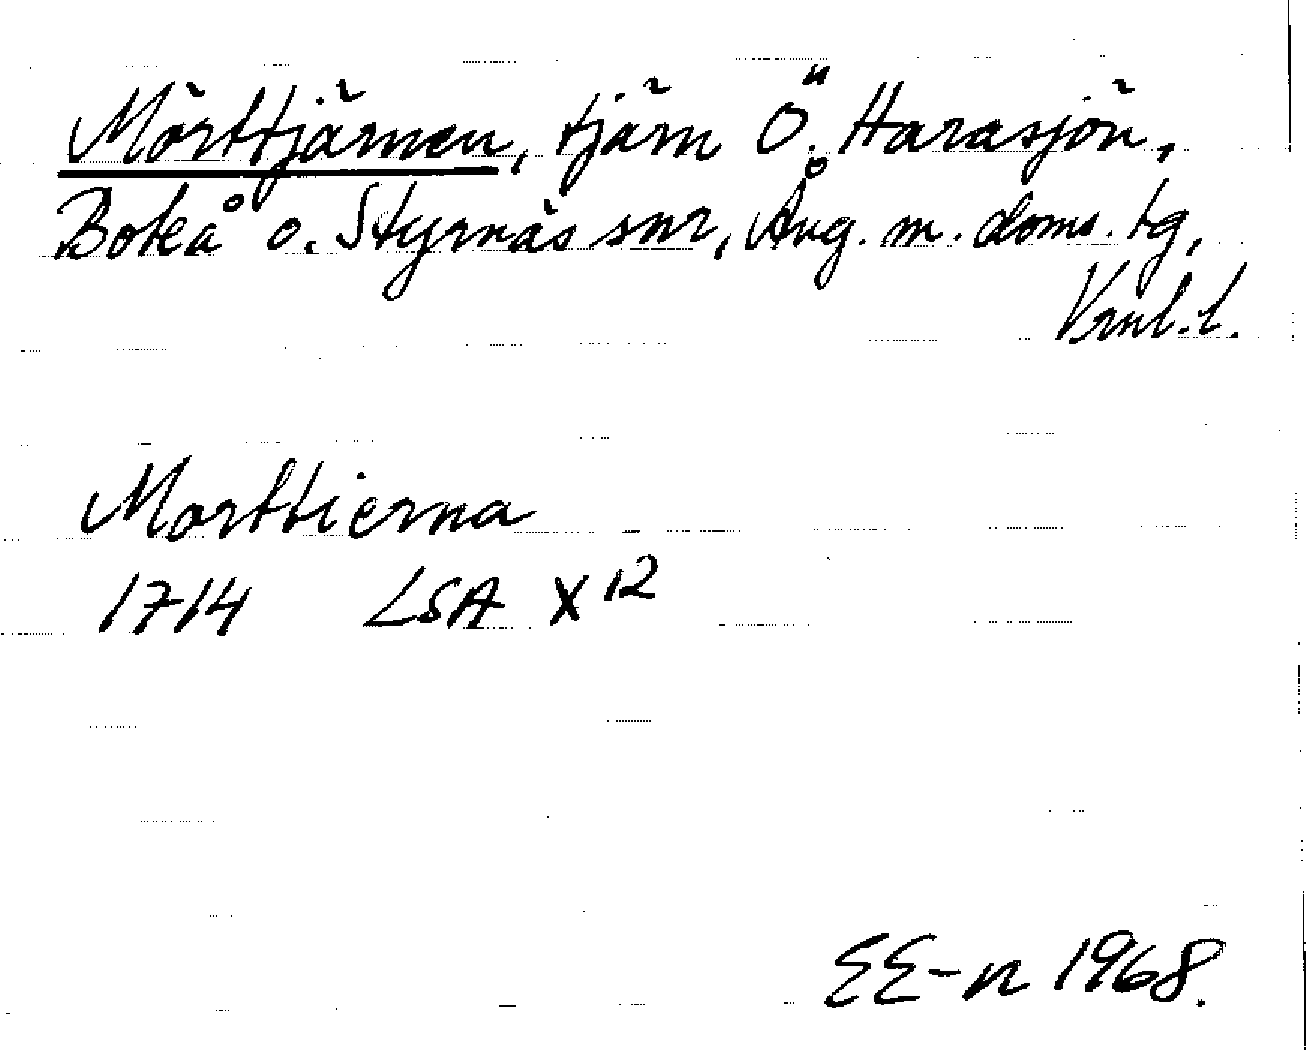 Mörttjärnen, tjärn Ö. Harasjön,
Boteå o. Styrnäs snr, Ång. m. doms. tg,
Vrnl.l.
Morttierna
1714 LSA X 12
EE-n 1968.